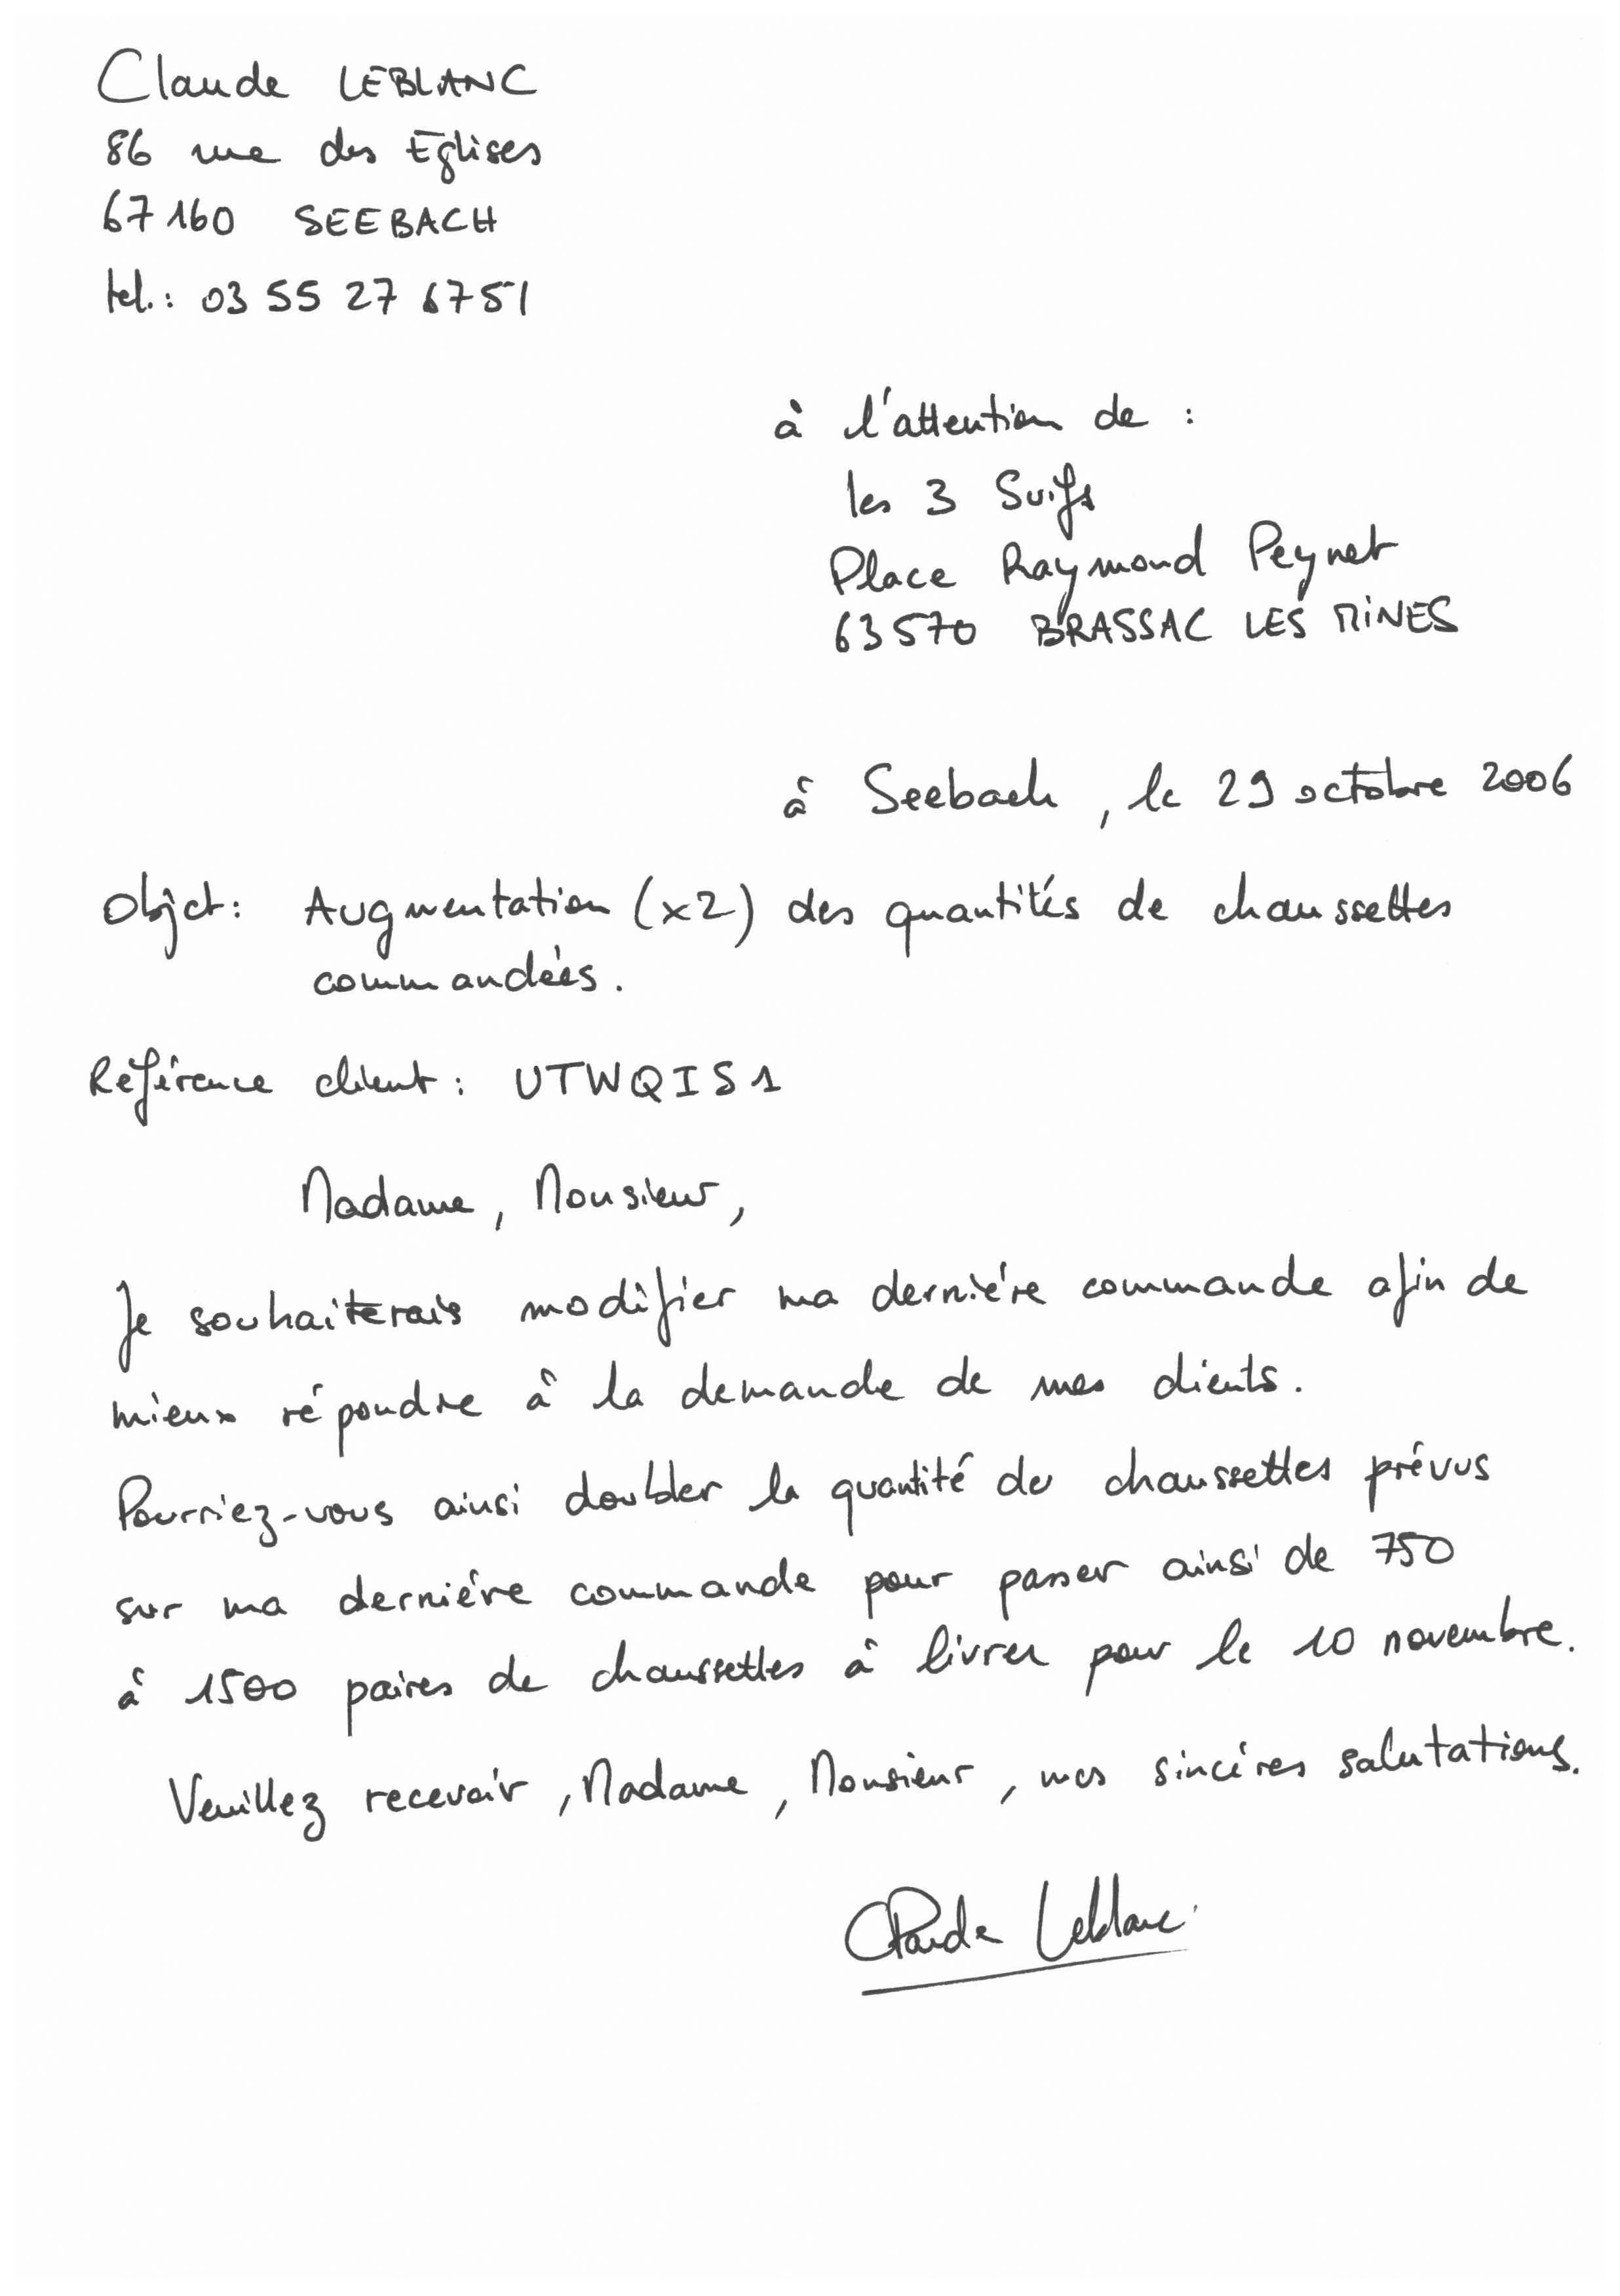 Claude LEBLANC
86 rue des Eglises
67160 SEEBACH
tel.: 03 55 27 67 51
à l'attention de :
les 3 Suifs
Place Raymond Peynet
63570 BRASSAC LES MINES
à Seebach, le 29 octobre 2006
Objet: Augmentation (x2) des quantités de chaussettes
commandées.
Référence client: UTWQIS1
Madame, Monsieur,
Je souhaiterais modifier ma dernière commande afin de
mieux répondre à la demande de mes clients.
Pourriez-vous ainsi doubler la quantité de chaussettes prévus
sur ma dernière commande pour passer ainsi de 750
à 1500 paires de chaussettes à livrer pour le 10 novembre.
Veuillez recevoir, Madame, Monsieur, mes sincères salutations.
Claude Leblanc